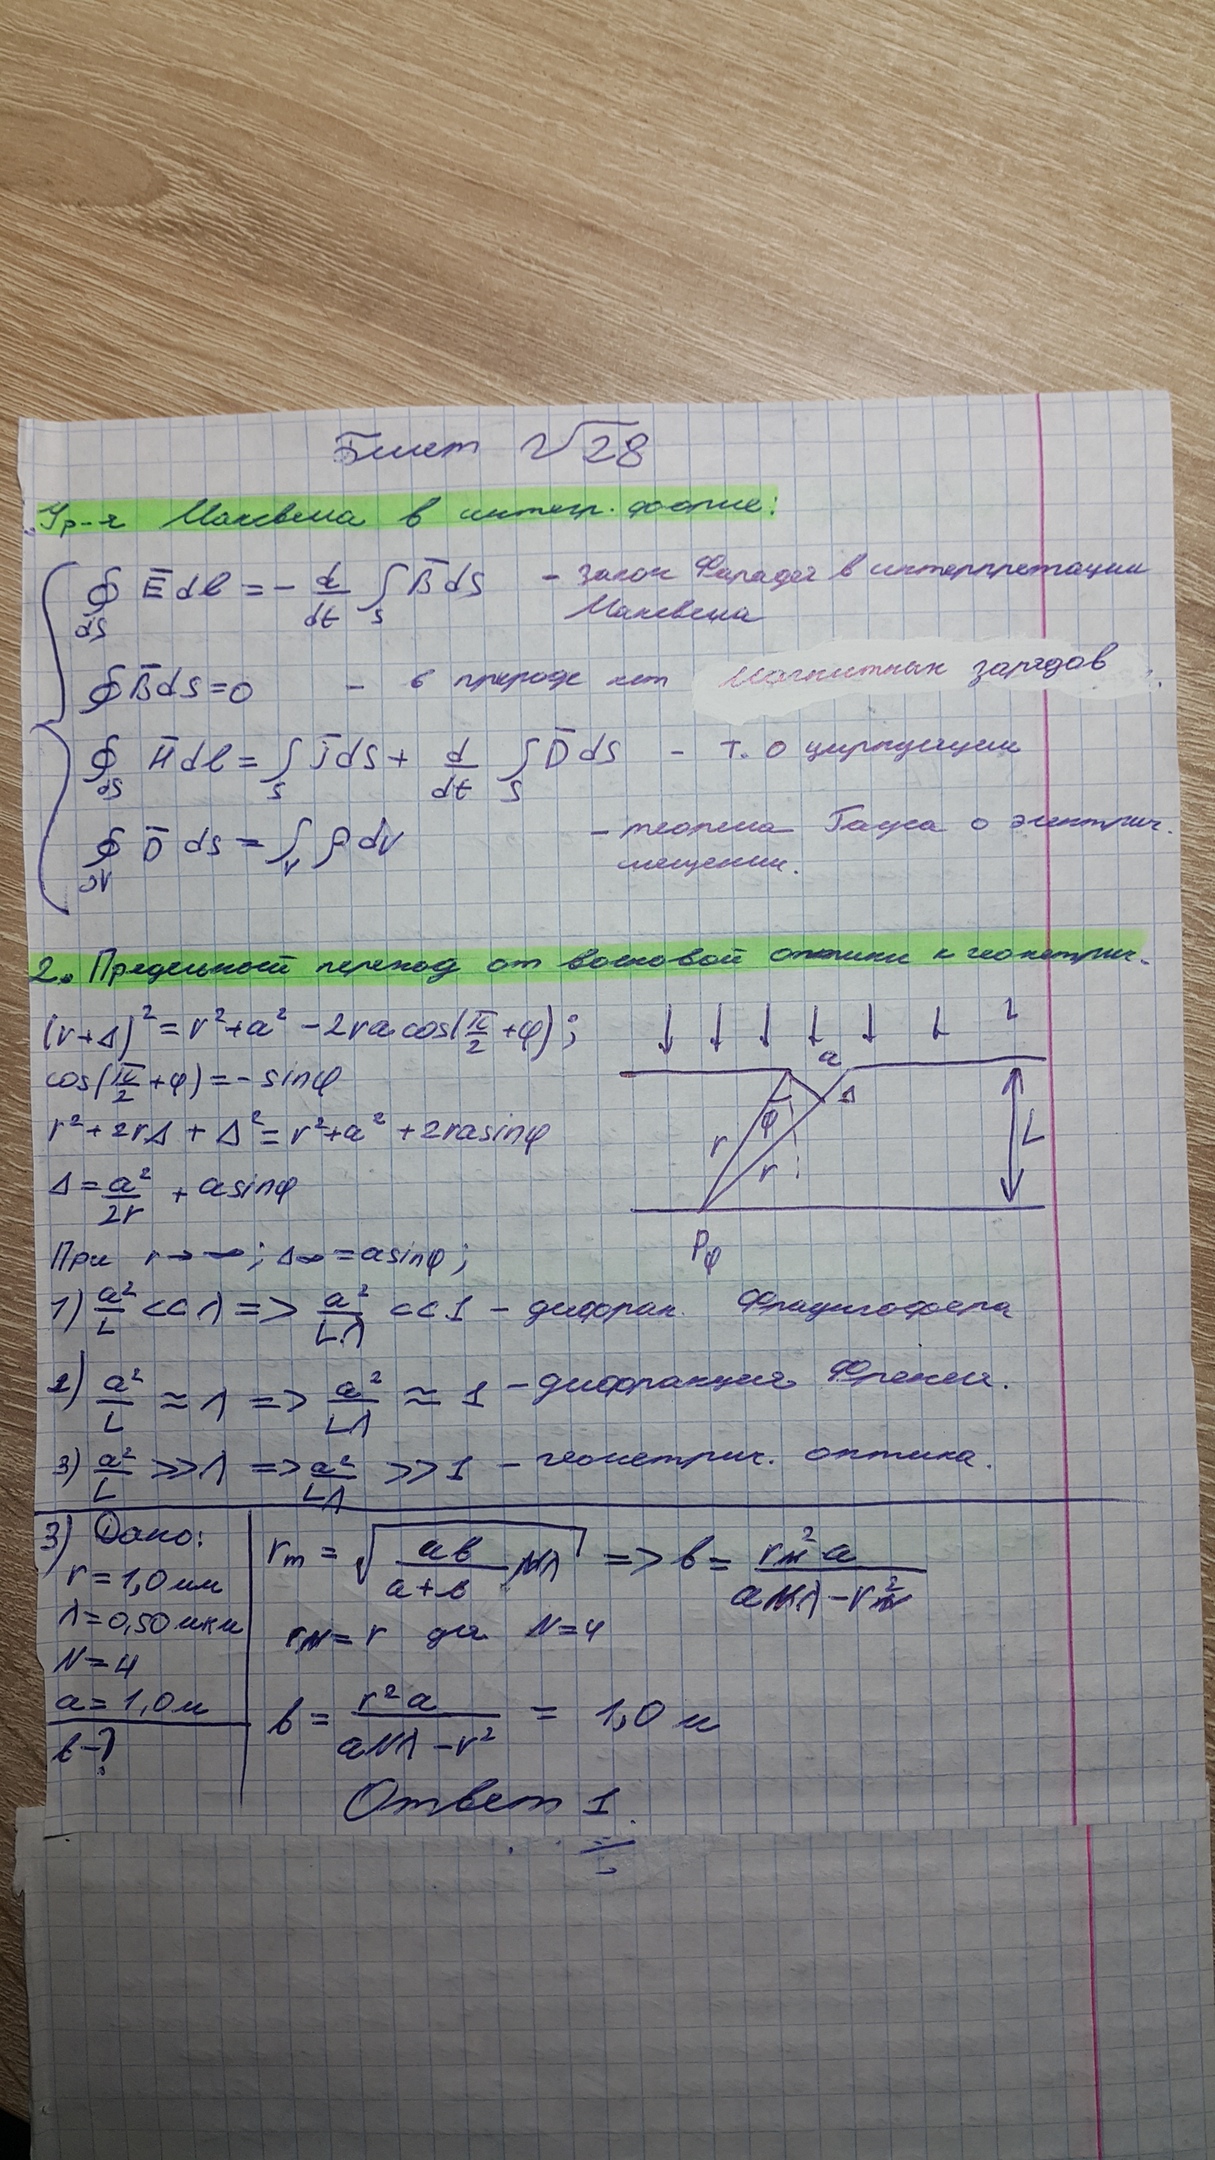 Билет √28
Ур-я Максвелла в интегр. форме:
∮_{∂S} E̅dl = - d/dt ∫_S B̅dS - закон Фарадея в интерпретации
Максвелла
∮B̅dS=0 - в природе нет магнитных зарядов.
∮_{∂S} H̅dl = ∫_S J̅dS + d/dt ∫_S D̅dS - т. о циркуляции
∮_{∂V} D̅ dS = ∫_V ρdV - теорема Гаусса о электрич.
смещении.
2. Предельный переход от волновой оптики к геометрич.
(r+Δ)² = r²+a² - 2ra cos(π/2 + φ);
cos(π/2 + φ) = - sinφ
r² + 2rΔ + Δ² = r² + a² + 2rasinφ
Δ = a²/2r + asinφ
При r→∞; Δ∞ = asinφ;
a
Δ
φ
r
r
L
Pφ
1) a²/L << λ => a²/Lλ << 1 - дифрак. Фраунгофера
2) a²/L ≈ λ => a²/Lλ ≈ 1 - дифракция Френеля.
3) a²/L >> λ => a²/Lλ >> 1 - геометрич. оптика.
3) Дано:
r = 1,0 мм
λ = 0,50 мкм
N = 4
a = 1,0 м
b - ?
r_m = √(ab/(a+b) Nλ) => b = r_N² a/(aNλ - r_N²)
r_N = r для N=4
b = r²a/(aNλ - r²) = 1,0 м
Ответ 1